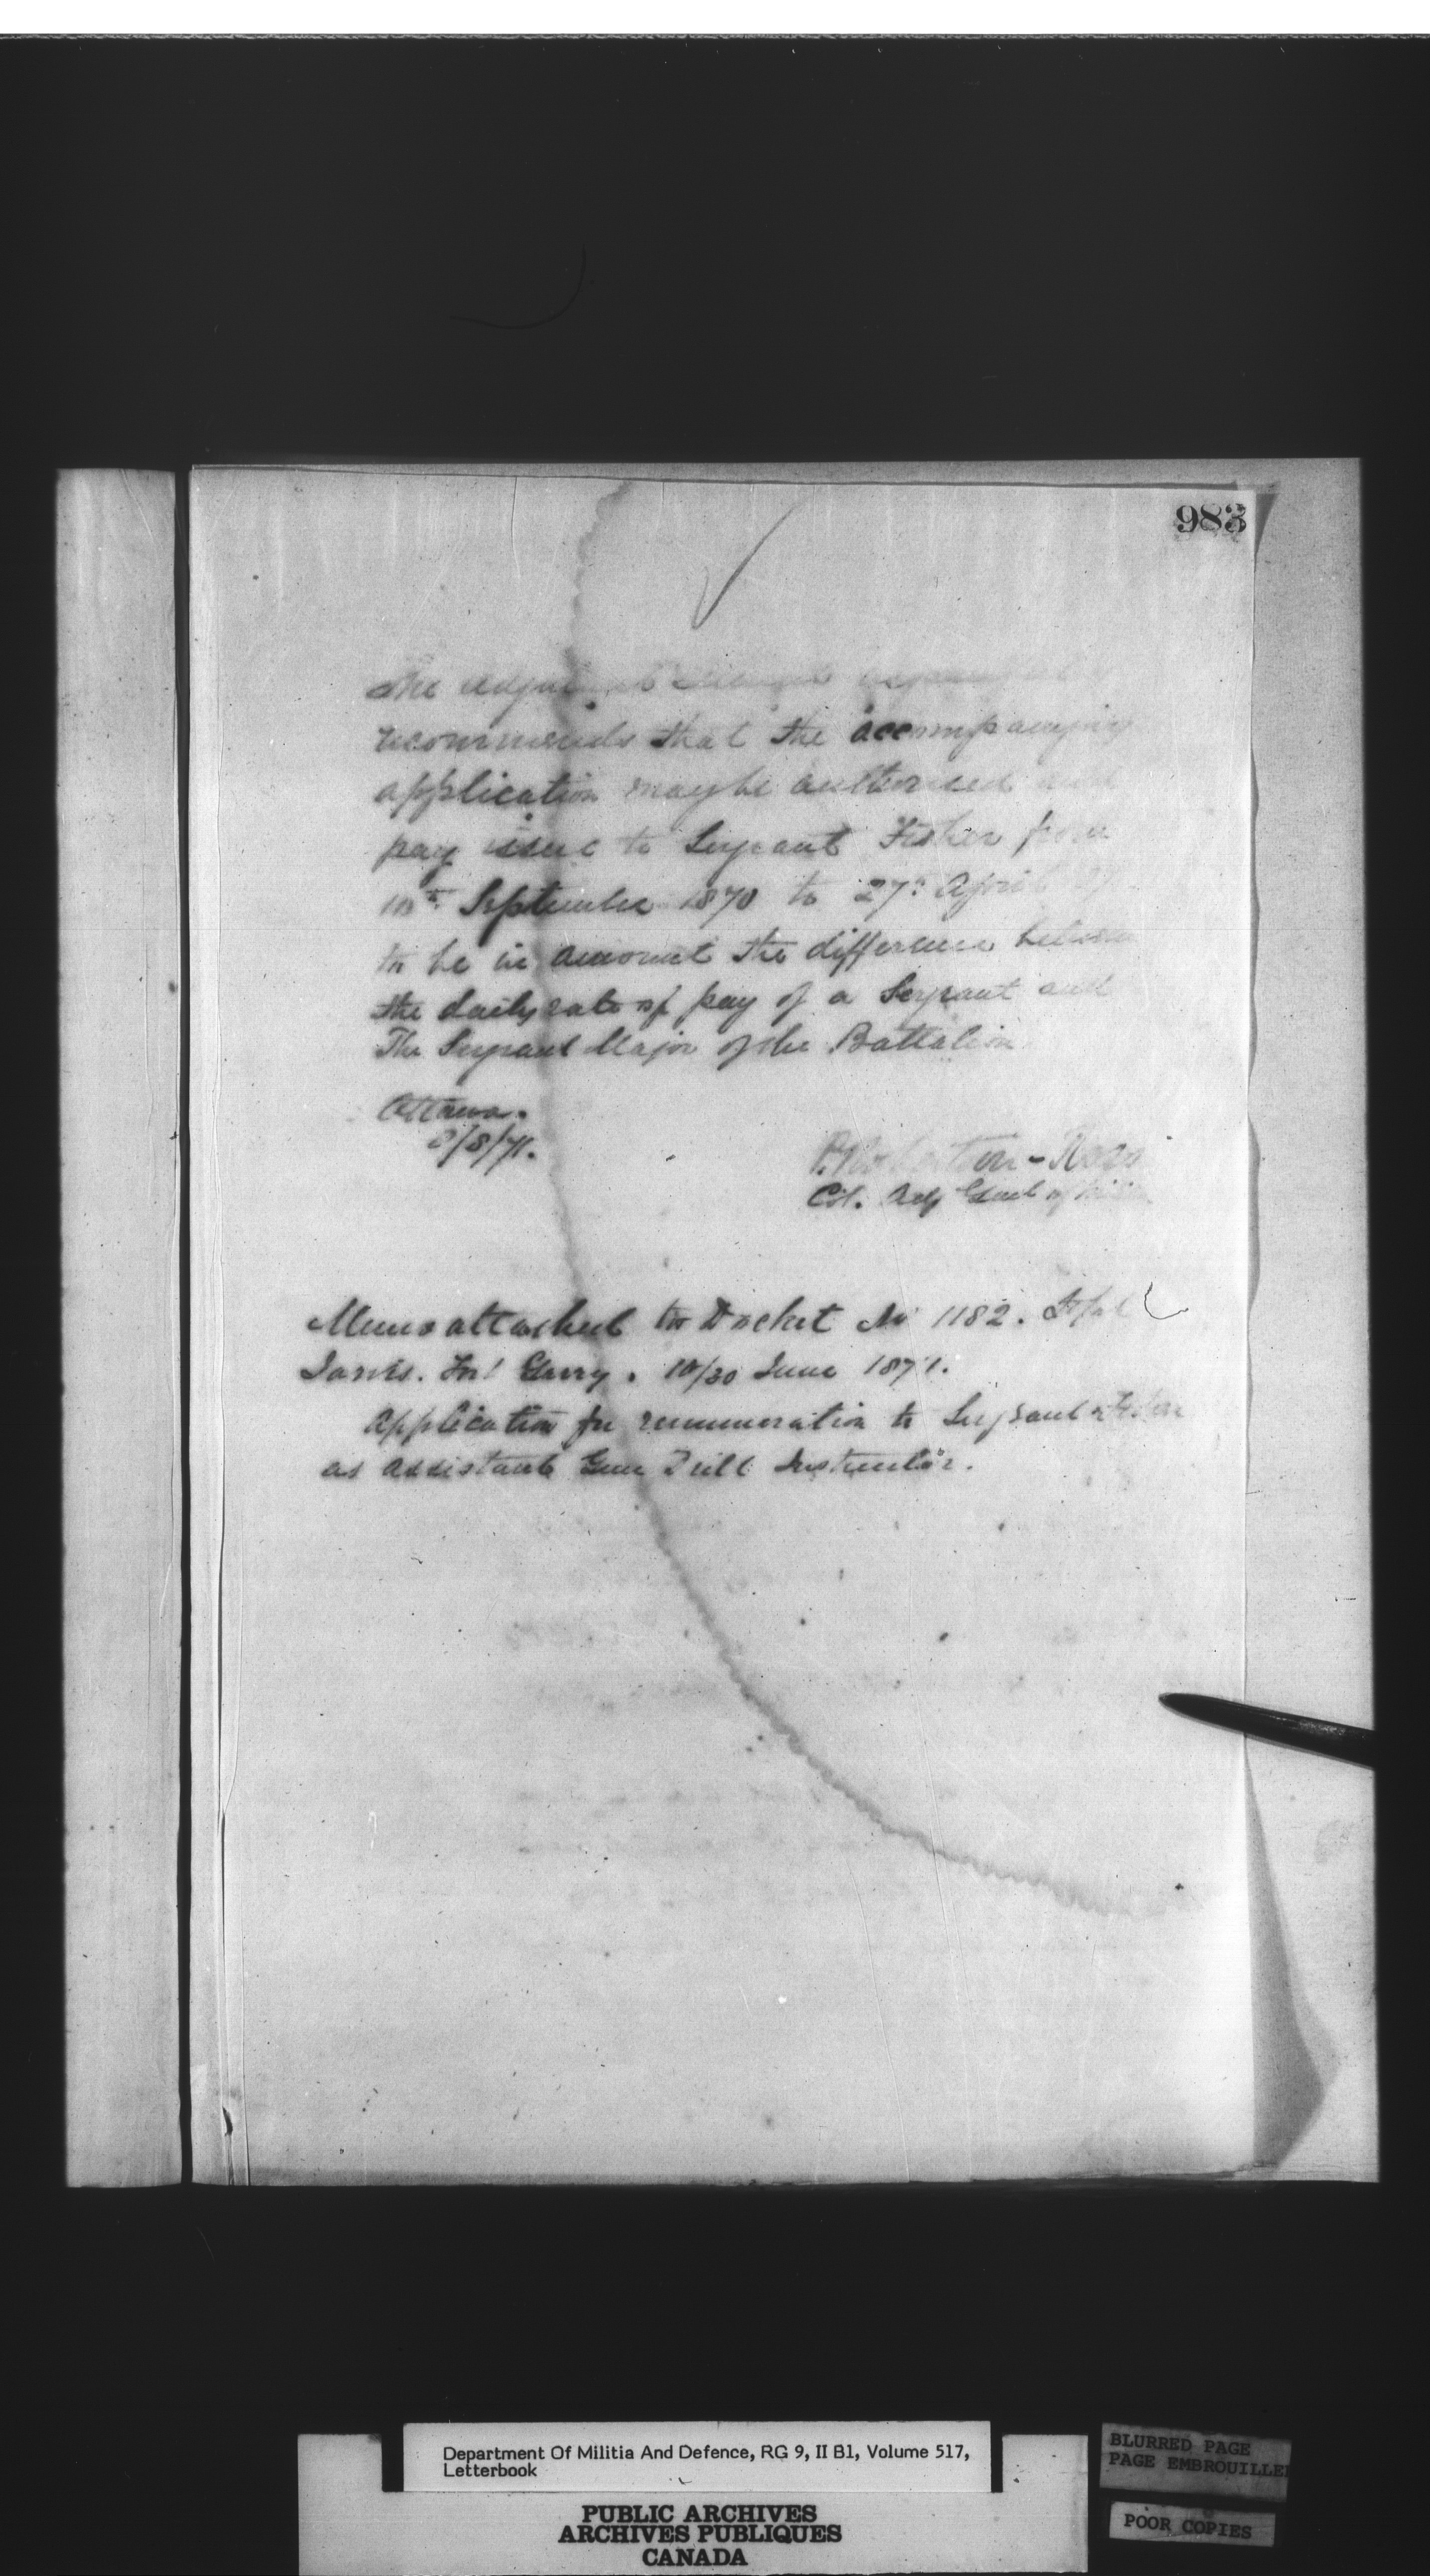 983
The Adjutant General
recommends that the accompanying
application may be authorised and
pay issue to Sergeant Fisher from
10th September 1870 to 27th April
to be in amount the difference between
the daily rate of pay of a Sergeant and
The Sergeant Major of the Battalion
Ottawa.
2/8/71.
P. Robertson-Ross
Col. Adjt Genl of Militia
Memo attached to Docket No 1182.
Jarvis. Fort Garry. 10/30 June 1871.
Application for remuneration to Sergeant Fisher
as Assistant Gun Drill Instructor.
Department Of Militia And Defence, RG 9, II B1, Volume 517,
Letterbook
PUBLIC ARCHIVES
ARCHIVES PUBLIQUES
CANADA
BLURRED PAGE
PAGE EMBROUILLE
POOR COPIES